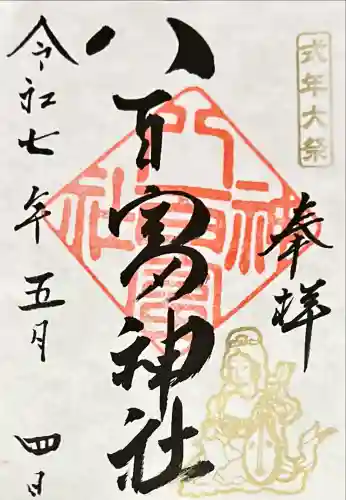 式年大祭
奉拝
八百富神社
八百富神社
令和七年五月四日